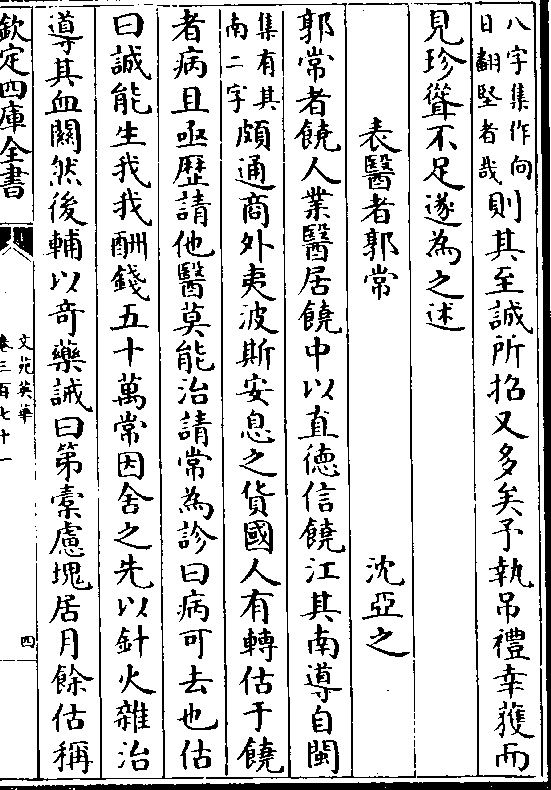 八字集作向
日翻堅者哉則其至誠所招又多矣予執吊禮幸獲而
見珍聳不足遂為之述
表醫者郭常
沈亞之
郭常者饒人業醫居饒中以直德信饒江其南導自閩
集有其
南二字頗通商外夷波斯安息之貨國人有轉估于饒
者病且亟歴請他醫莫能治請常為診曰病可去也估
曰誠能生我我酬錢五十萬常因舍之先以針火雜治
導其血關然後輔以奇藥誡曰第槖慮塊居月餘估稱
欽定四庫全書
文苑英華
卷三百七十一
四